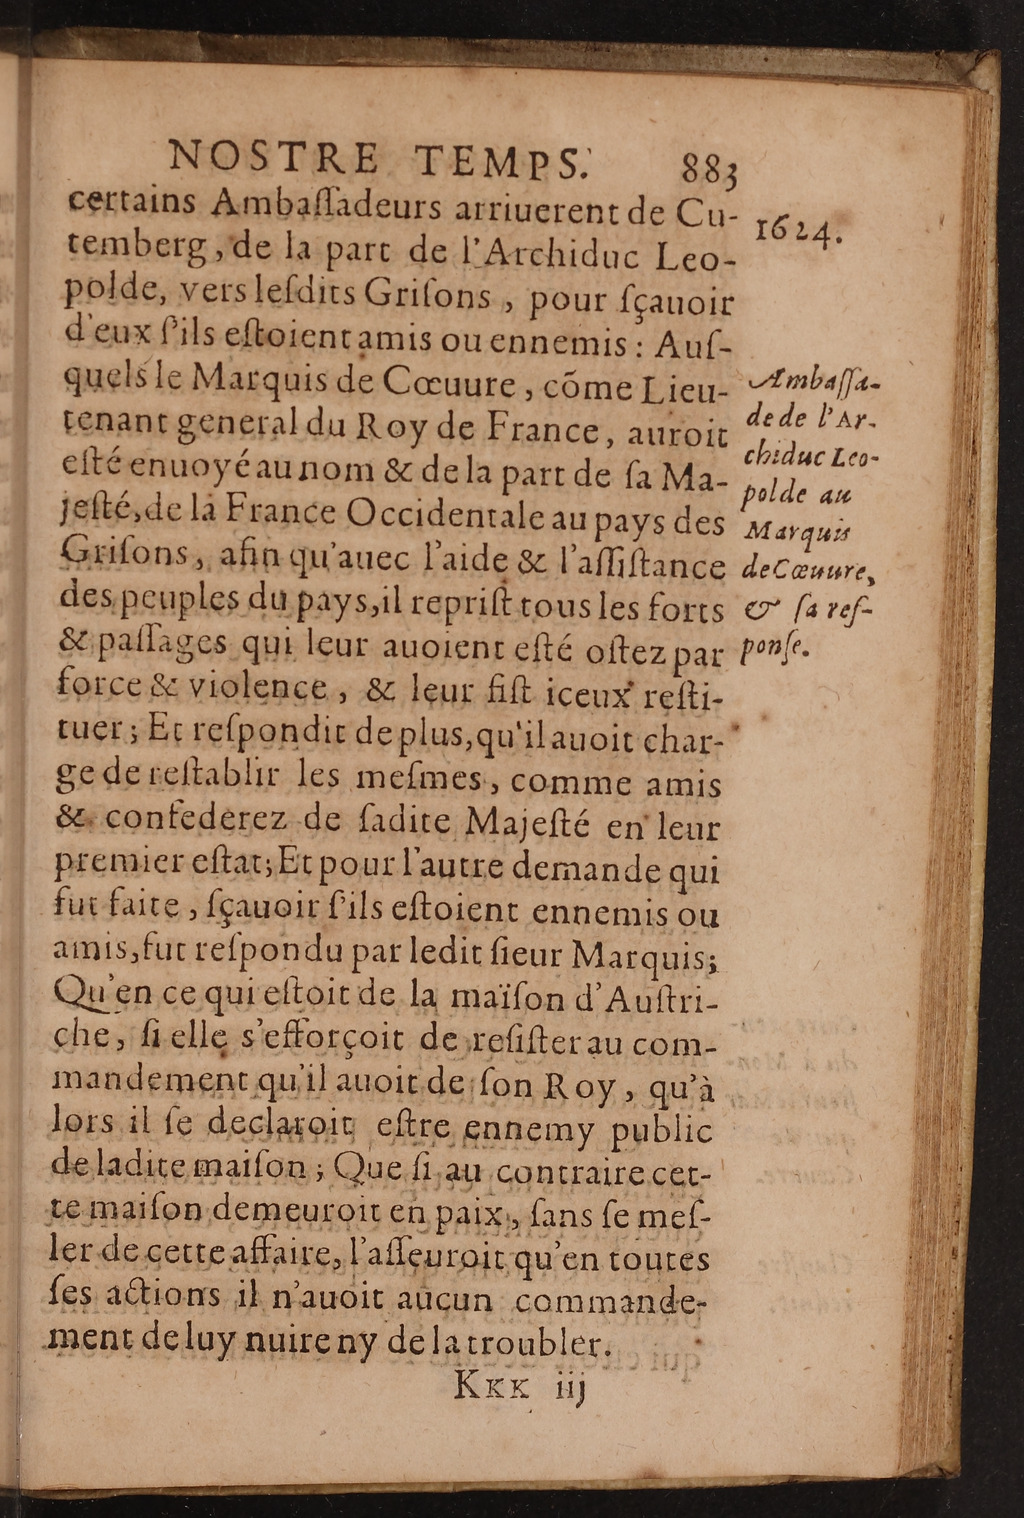 NOSTRE TEMPS. 883
certains Ambaſſadeurs arriuerent de Cu-
temberg, de la part de l'Archiduc Leo-
polde, vers leſdits Griſons, pour ſçauoir
d'eux ſ'ils eſtoient amis ou ennemis: Auſ-
quels le Marquis de Cœuure, cõme Lieu-
tenant general du Roy de France, auroit
eſté enuoyé au nom & de la part de ſa Ma-
jeſté, de la France Occidentale au pays des
Griſons, afin qu'auec l'aide & l'aſſiſtance
des peuples du pays, il repriſt tous les forts
& paſſages qui leur auoient eſté oſtez par
force & violence, & leur fiſt iceux reſti-
tuer; Et reſpondit de plus, qu'il auoit char-
ge de reſtablir les meſmes, comme amis
& confederez de ſadite Majeſté en leur
premier eſtat; Et pour l'autre demande qui
fut faite, ſçauoir ſ'ils eſtoient ennemis ou
amis, fut reſpondu par ledit ſieur Marquis;
Qu'en ce qui eſtoit de la maïſon d'Auſtri-
che, ſi elle s'efforçoit de reſiſter au com-
mandement qu'il auoit de ſon Roy, qu'à
lors il ſe declaroit eſtre ennemy public
de ladite maiſon; Que ſi au contraire cet-
te maiſon demeuroit en paix, ſans ſe meſ-
ler de cette affaire, l'aſſeuroit qu'en toutes
ſes actions il n'auoit aucun commande-
ment de luy nuire ny de la troubler.
Kkk iij
1624.
Ambaſſa-
de de l'Ar-
chiduc Leo-
polde au
Marquis
de Cœuure,
& ſa reſ-
ponſe.